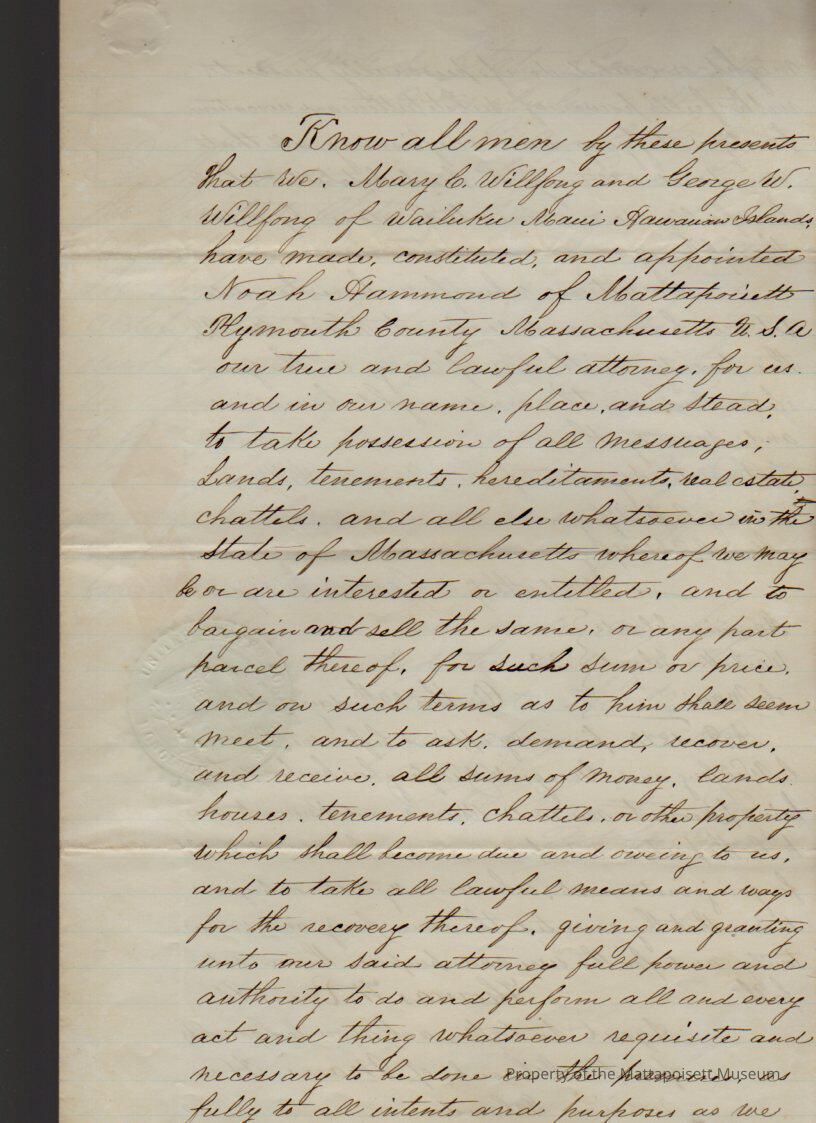 Know all men by these presents
that We. Mary C. Willfong and George W.
Willfong of Wailuku Maui Hawaiian Islands,
have made, constituted, and appointed
Noah Hammond of Mattapoisett
Plymouth County Massachusetts U. S. A
our true and lawful attorney, for us.
and in our name, place, and stead,
to take possession of all messuages,
Lands, tenements, hereditaments, real estate,
chattels. and all else whatsoever in the
State of Massachusetts whereof we may
be or are interested or entitled, and to
bargain and sell the same, or any part
parcel thereof, for such sum or price,
and on such terms as to him shall seem
meet, and to ask, demand, recover,
and receive, all sums of money, lands
houses, tenements, chattels, or other property
which shall become due and oweing to us,
and to take all lawful means and ways
for the recovery thereof, giving and granting
unto our said attorney full power and
authority to do and perform all and every
act and thing whatsoever requisite and
necessary to be done in the premises, as
fully to all intents and purposes as we
Property of the Mattapoisett Museum
UNITED